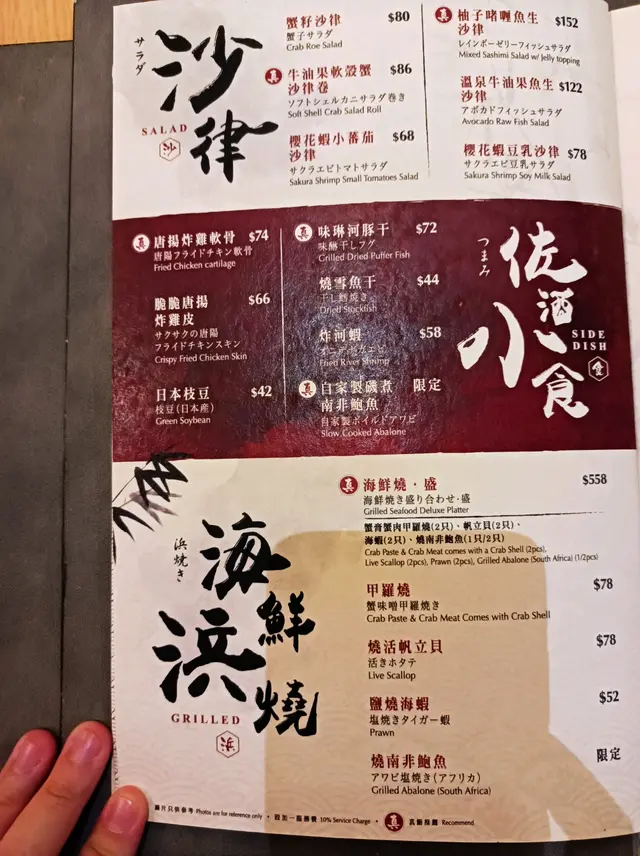 サラダ
沙律
SALAD
沙
蟹籽沙律 $80
蟹子サラダ
Crab Roe Salad
真 牛油果軟殼蟹 $86
沙律卷
ソフトシェルカニサラダ巻き
Soft Shell Crab Salad Roll
櫻花蝦小蕃茄 $68
沙律
サクラエビトマトサラダ
Sakura Shrimp Small Tomatoes Salad
真 柚子啫喱魚生 $152
沙律
レインボーゼリーフィッシュサラダ
Mixed Sashimi Salad w/ Jelly topping
溫泉牛油果魚生 $122
沙律
アボカドフィッシュサラダ
Avocado Raw Fish Salad
櫻花蝦豆乳沙律 $78
サクラエビ豆乳サラダ
Sakura Shrimp Soy Milk Salad
つまみ
佐酒小食
SIDE
DISH
食
真 唐揚炸雞軟骨 $74
唐陽フライドチキン軟骨
Fried Chicken cartilage
脆脆唐揚 $66
炸雞皮
サクサクの唐陽
フライドチキンスキン
Crispy Fried Chicken Skin
日本枝豆 $42
枝豆(日本産)
Green Soybean
真 味琳河豚干 $72
味醂干しフグ
Grilled Dried Puffer Fish
燒雪魚干 $44
干し鱈焼き
Dried Stockfish
炸河蝦 $58
Fried River Shrimp
真 自家製磯煮 限定
南非鮑魚
自家製ボイルドアワビ
Slow Cooked Abalone
浜焼き
海鮮浜燒
GRILLED
浜
真 海鮮燒・盛 $558
海鮮焼き盛り合わせ·盛
Grilled Seafood Deluxe Platter
蟹膏蟹肉甲羅燒(2只)、帆立貝(2只)、
海蝦(2只)、燒南非鮑魚(1只/2只)
Crab Paste & Crab Meat comes with a Crab Shell (2pcs),
Live Scallop (2pcs), Prawn (2pcs), Grilled Abalone (South Africa) (1/2pcs)
甲羅燒 $78
蟹味噌甲羅焼き
Crab Paste & Crab Meat Comes with Crab Shell
燒活帆立貝 $78
活きホタテ
Live Scallop
鹽燒海蝦 $52
塩焼きタイガー蝦
Prawn
燒南非鮑魚 限定
アワビ塩焼き(アフリカ)
Grilled Abalone (South Africa)
圖片只供參考 Photos are for reference only • 設加一服務費 10% Service Charge • 真 真鄭推薦 Recommend